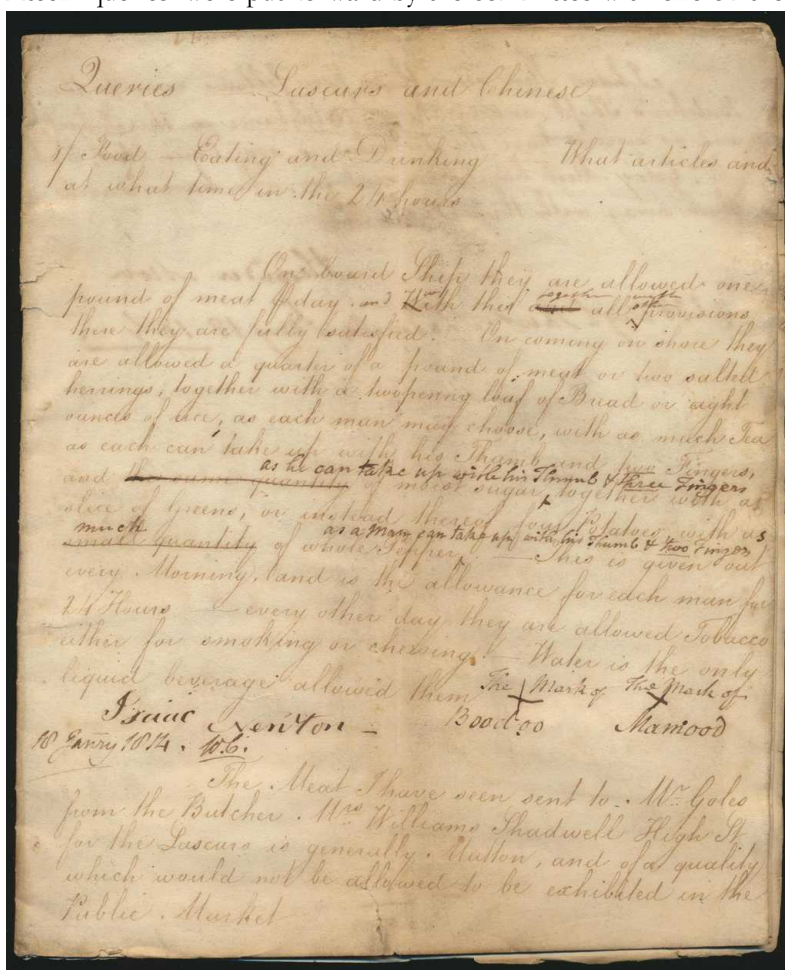 Queries Lascars and Chinese
1/ Food — Eating and Drinking What articles and
at what time in the 24 hours
On board Ship they are allowed one
pound of meat day. and With this and all provisions
there they are fully satisfied. On coming on shore they
are allowed a quarter of a pound of meat or two salted
herrings, together with a twopenny loaf of Bread or eight
ounces of rice, as each man may choose, with as much Tea
as each can take up with his Thumb and two Fingers,
as he can take up with his Thumb & three Fingers
and the same quantity of moist sugar, together with a
slice of Greens, or instead thereof four Potatoes with as
much as a man can take up with his Thumb & two Fingers
small quantity of whole Pepper. — This is given out
every Morning, and is the allowance for each man for
24 Hours — every other day they are allowed Tobacco
either for smoking or chewing. — Water is the only
liquid beverage allowed them The Mark of The Mark of
Isaac Newton — Boodoo Mamood
18 Janry 1814.
The Meat I have seen sent to Mr Goles
from the Butcher Mrs Williams Shadwell High St
for the Lascars is generally Mutton, and of a quality
which would not be allowed to be exhibited in the
Public Market